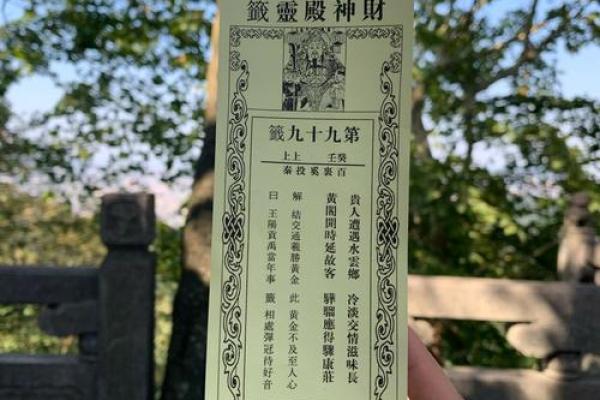 財神殿靈籤
第九十九籤
癸壬 上上
百裏奚投秦
貴人遭遇水雲鄉 冷淡交情滋味長
黃閣開時延故客 驊騮應得驟康莊
解 結交通義勝黃金 此 黃金不及至人心
曰 王陽貢禹當年事 籤 相處彈冠待好音